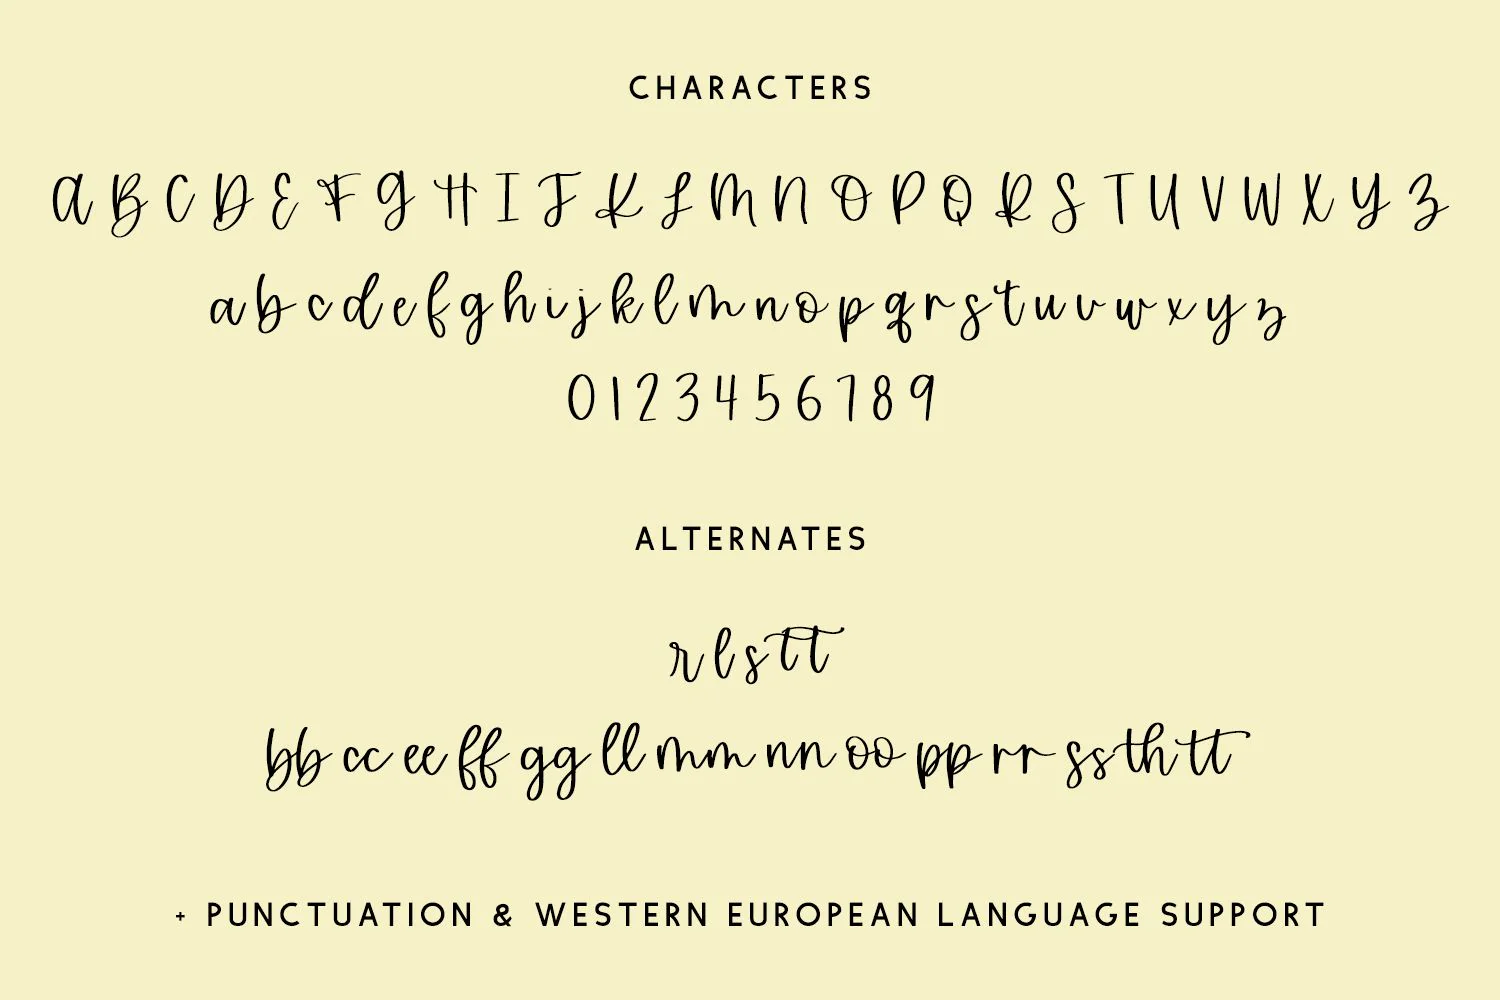 CHARACTERS
A B C D E F G H I J K L M N O P Q R S T U V W X Y Z
a b c d e f g h i j k l m n o p q r s t u v w x y z
0 1 2 3 4 5 6 7 8 9
ALTERNATES
r l s t t
bb cc ee ff gg ll mm nn oo pp rr ss th tt
+ PUNCTUATION & WESTERN EUROPEAN LANGUAGE SUPPORT